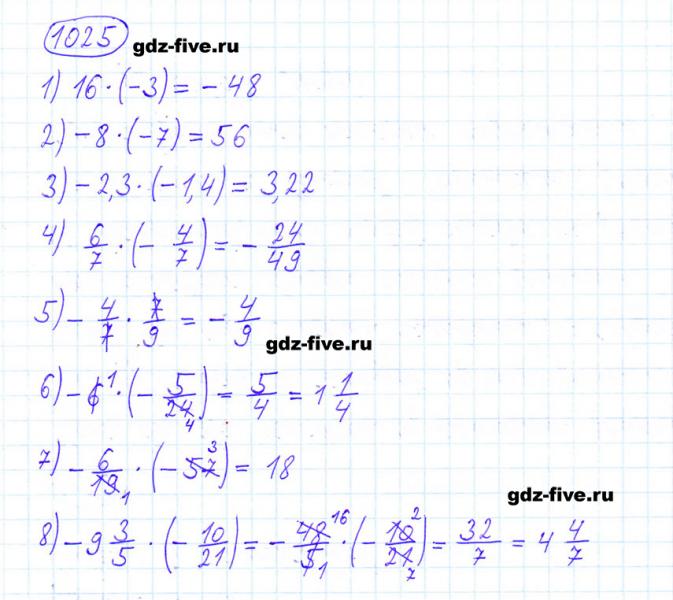 1025 gdz-five.ru
1) 16 · (−3) = −48
2) −8 · (−7) = 56
3) −2,3 · (−1,4) = 3,22
4) 6/7 · (− 4/7) = − 24/49
5) − 4/7 · 7/9 = − 4/9
gdz-five.ru
6) −6 1 · (− 5/24 4) = 5/4 = 1 1/4
7) − 6/19 1 · (−57 3) = 18
gdz-five.ru
8) −9 3/5 · (− 10/21) = − 48 16/5 1 · (− 10 2/21 7) = 32/7 = 4 4/7